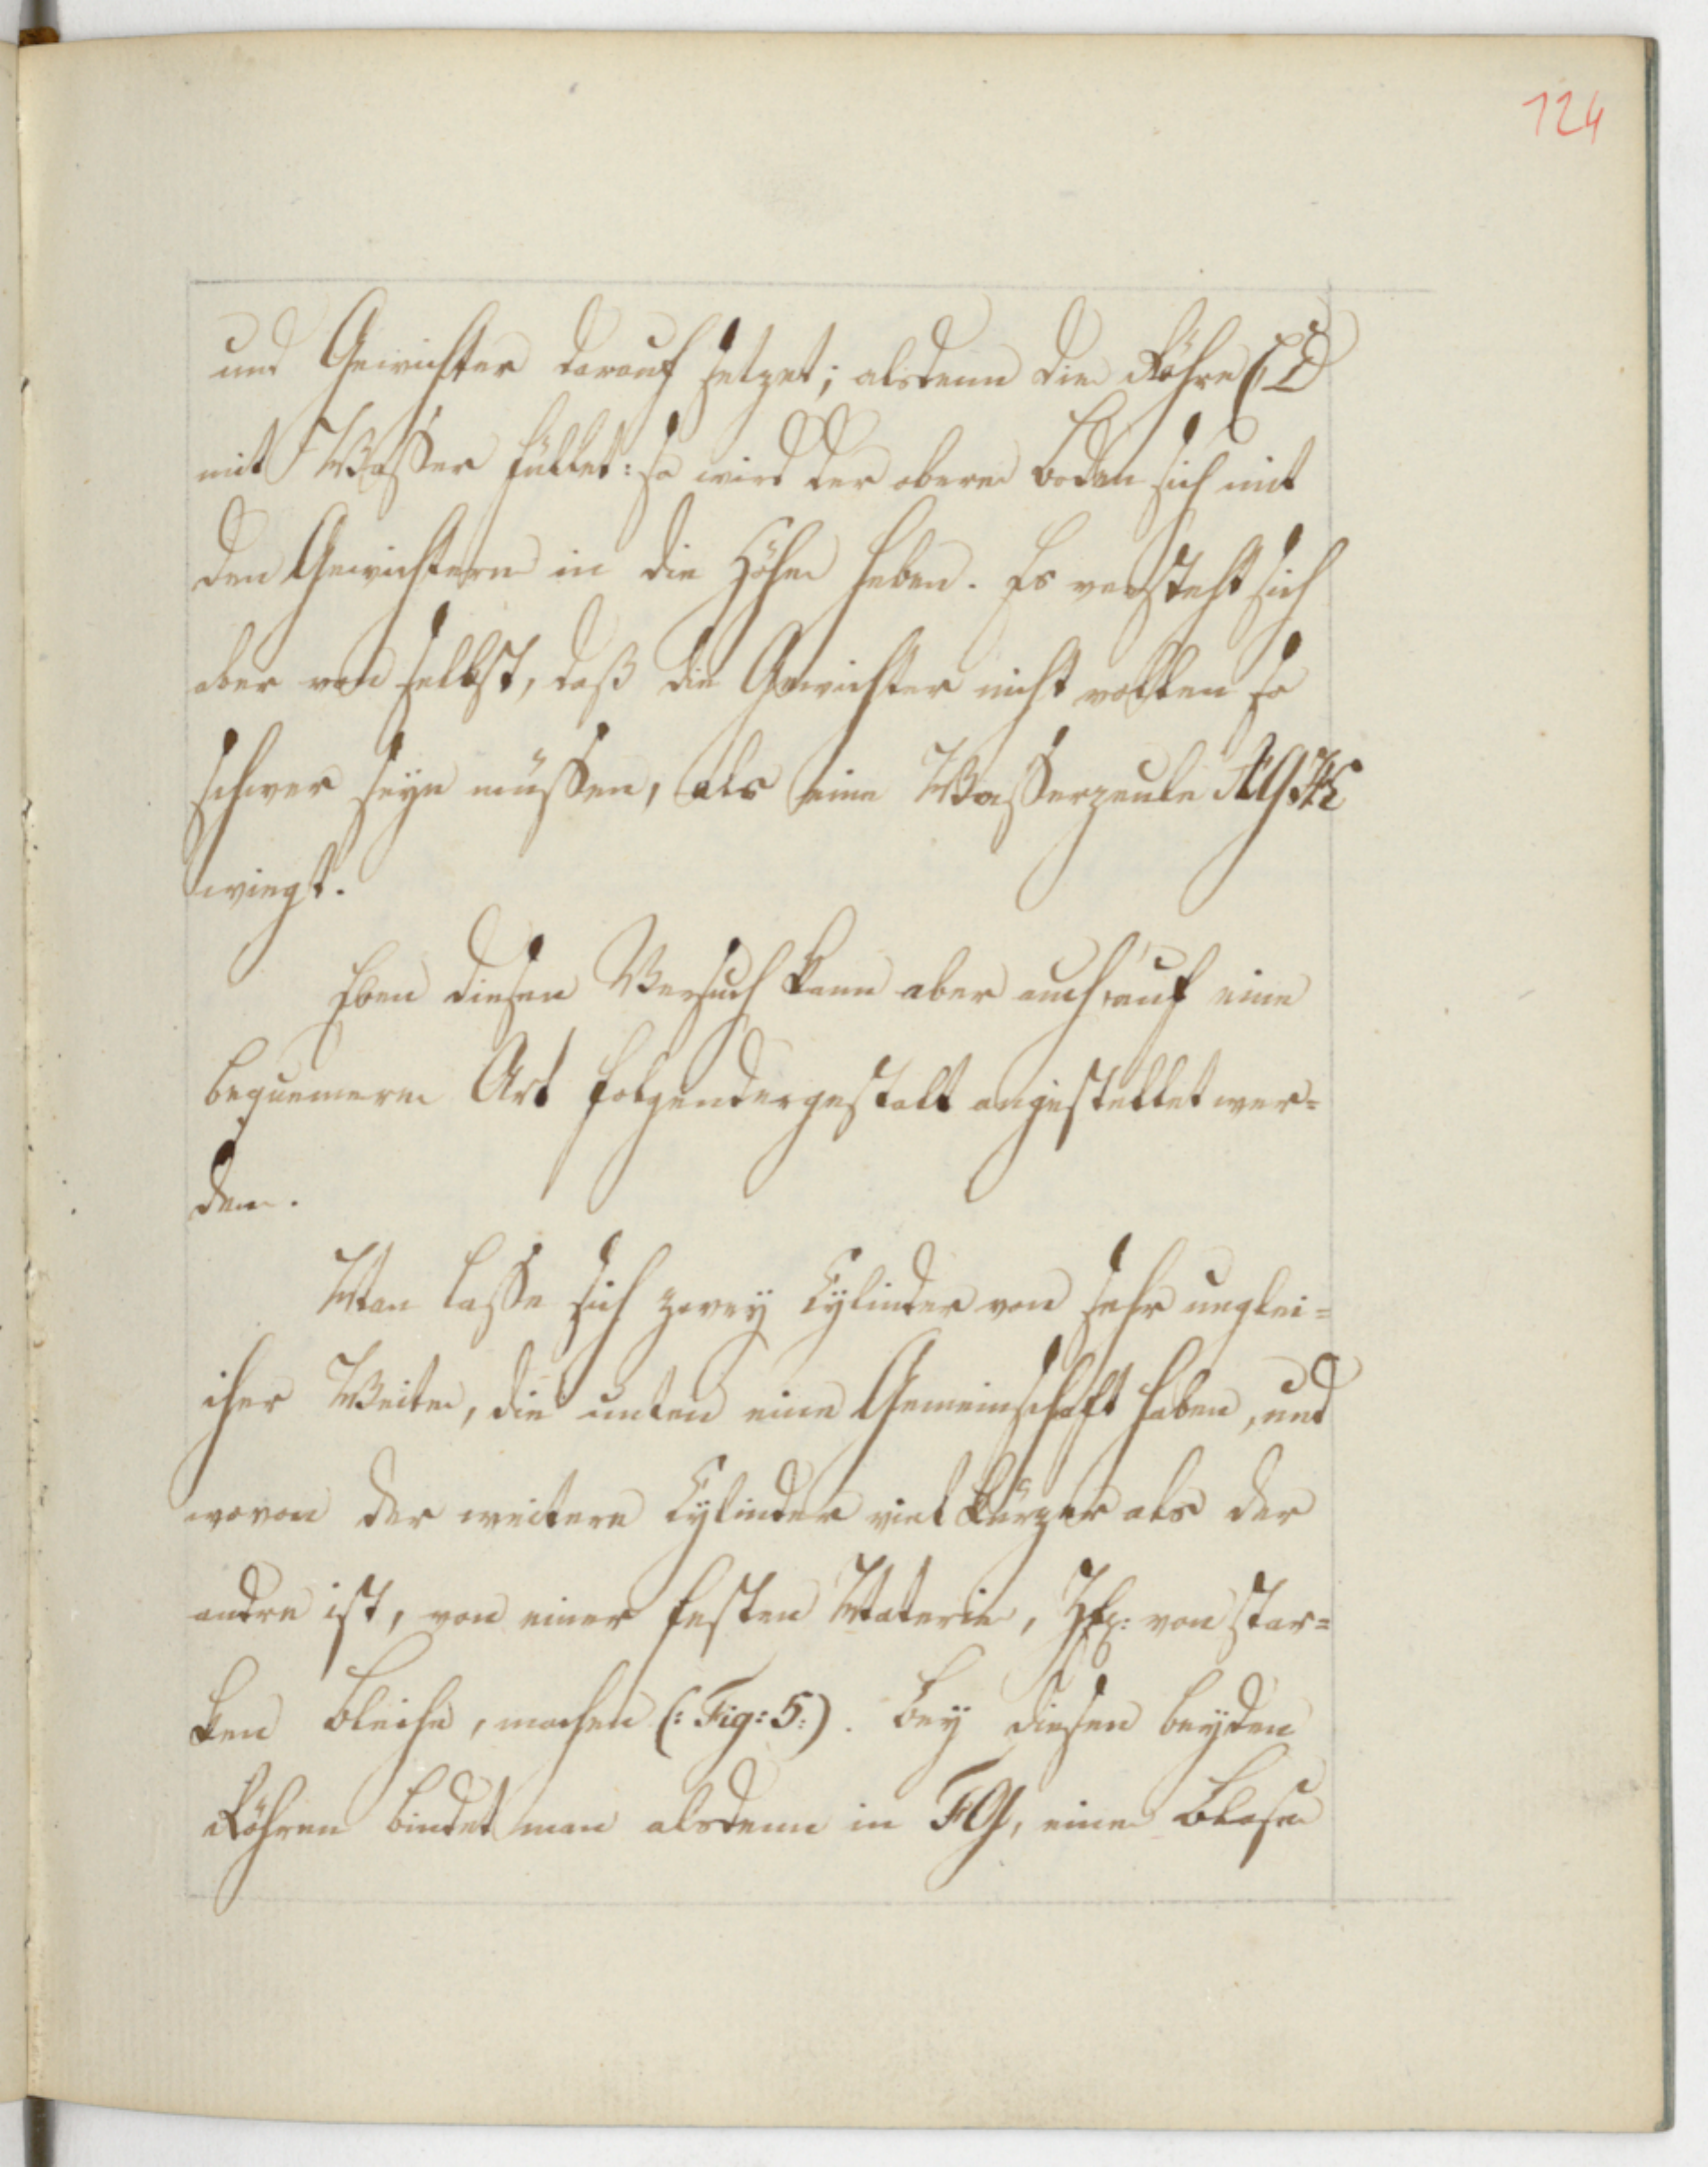 124
und Gewichter darauf setzet; alsdenn die Röhre CD
mit Wasser füllet: so wird der obere Boden sich mit
den Gewichtern in die Höhe heben. Es versteht sich
aber von selbst, daß die Gewichter nicht vollen so
schwer seyn müssen, als eine Wasserzeule
wiegt.
Eben diesen Versuch kann aber auch auf eine
bequemere Art folgendergestalt angestellet wer=
den.
Man lasse sich zwey Cylinder von sehr unglei=
cher Weite, die unten eine Gemeinschaft haben, und
wovon der weitere Cylinder viel kürzer als der
andre ist, von einer festen Materie, von star=
ken Bleche, machen (: Fig: 5:). Bey diesen beyden
Röhren bindet man alsdenn in FG, eine Blase